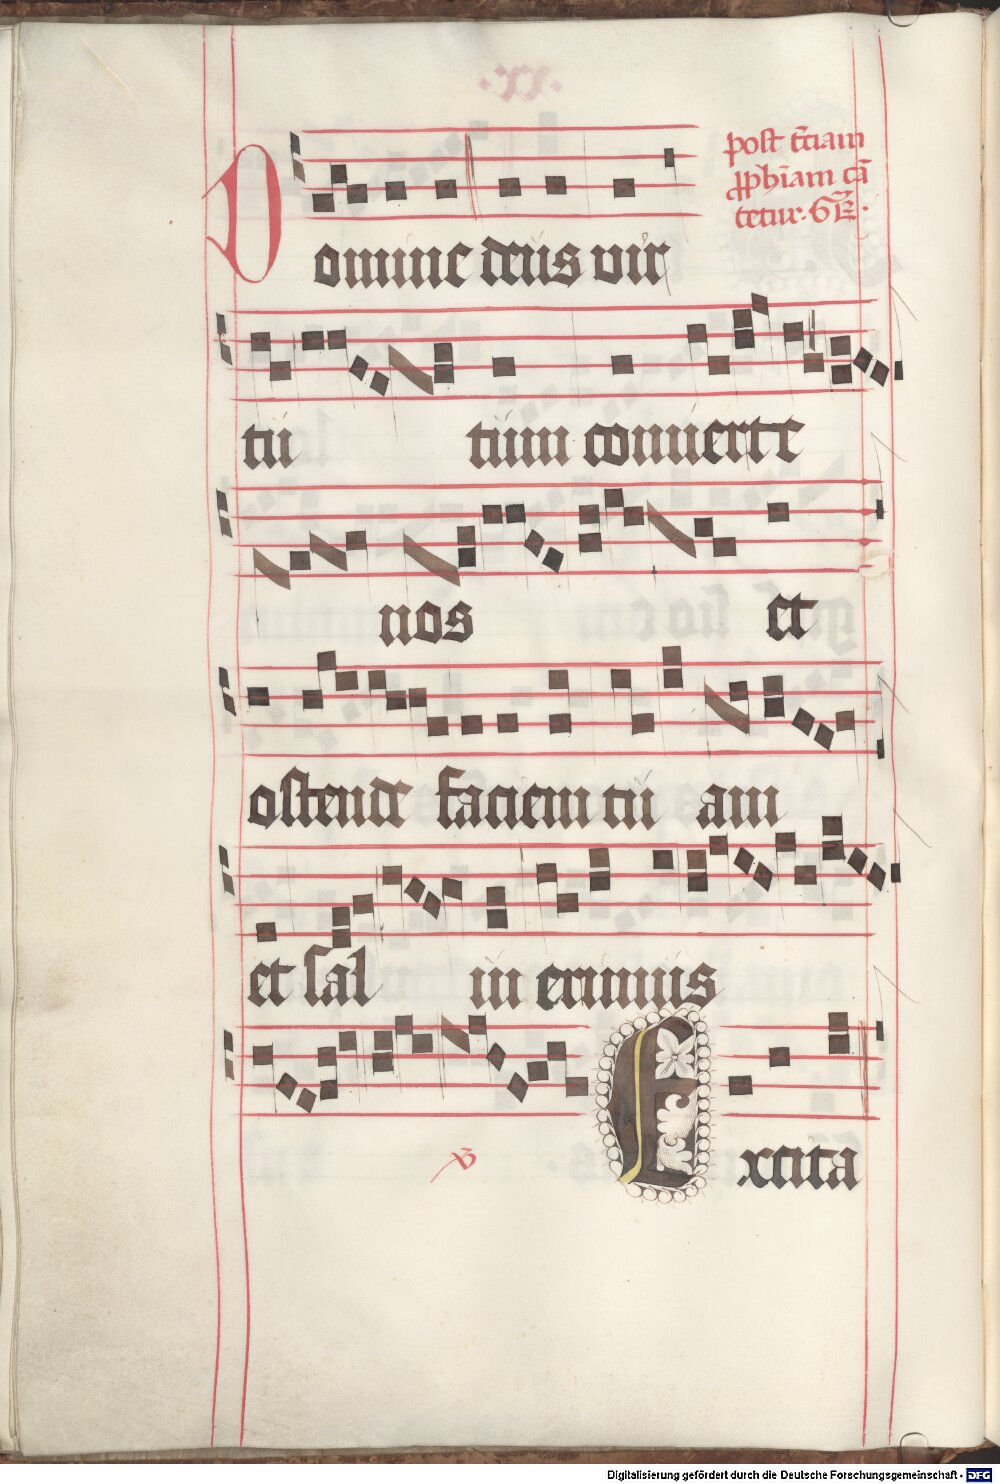 ·xx·
post t̄ciam
ꝓphīam cā
tetur. G͞R.
Domine deus vir
tu tum conuerte
nos et
ostende faciem tu am
et sal ui erimus
℣
Excita
Digitalisierung gefördert durch die Deutsche Forschungsgemeinschaft - DFG